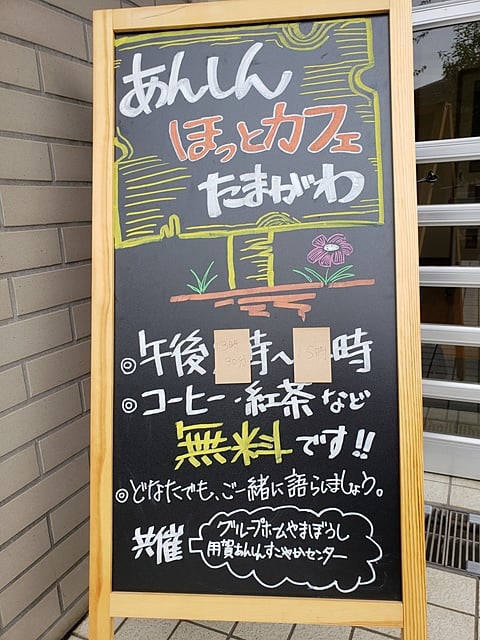 あんしん
ほっとカフェ
たまがわ
◎午後3時30分時〜5時時
◎コーヒー・紅茶など
無料です!!
◎どなたでも、ご一緒に語らしましょう。
共催
グループホームやまぼうし
用賀あんしんすこやかセンター